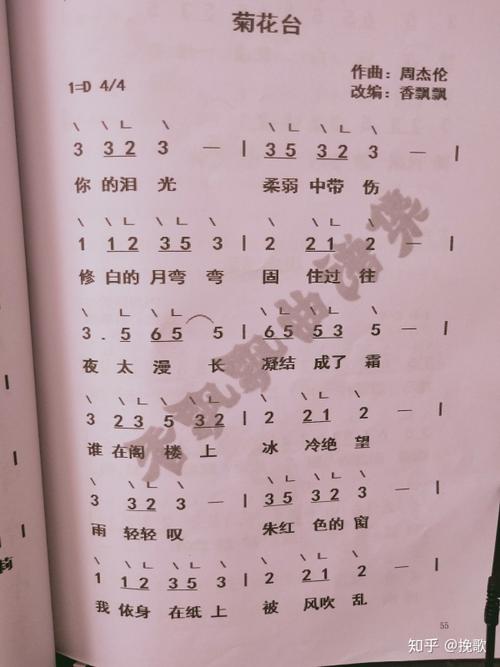 菊花台
作曲：周杰伦
1=D 4/4
改编：香飘飘
\ \ ㄴ \ \ \ ㄴ \
3 3 2 3 — | 3 5 3 2 3 — |
你 的泪 光 柔弱 中带 伤
\ \ ㄴ \ ㄴ \ \ \ ㄴ \
1 1 2 3 5 3 | 2 2 1 2 — |
惨 白的 月弯 弯 固 住过 往
3 . 5 6 5 5 | 6 5 5 3 5 — |
夜 太 漫 长 凝结 成了 霜
3 2 3 5 3 2 | 2 2 1 2 — |
谁 在阁 楼 上 冰 冷绝 望
3 3 2 3 — | 3 5 3 2 3 — |
雨 轻轻 叹 朱红 色的 窗
1 1 2 3 5 3 | 2 2 1 2 — |
我 依身 在纸 上 被 风吹 乱
55
知乎 @挽歌